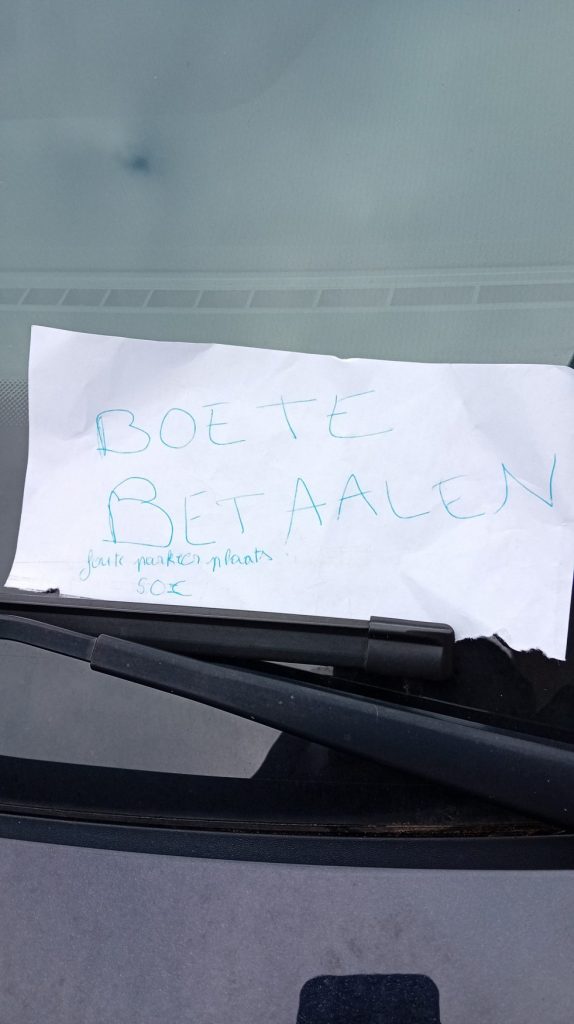 BOETE
BETAALEN
foute parkeer plaats.
50€